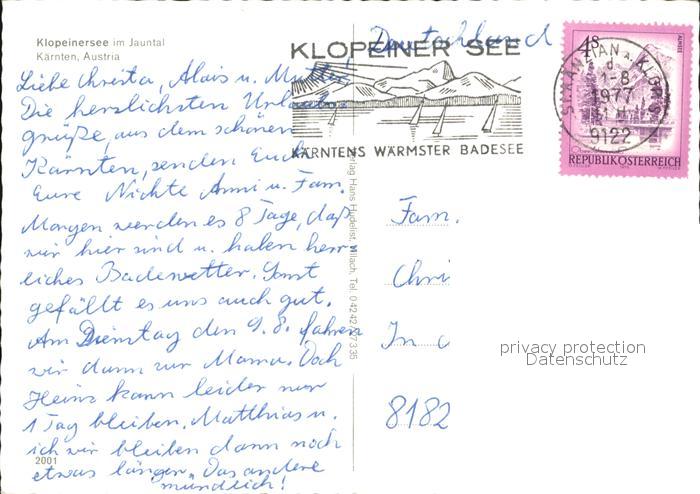 Klopeinersee im Jauntal
Kärnten, Austria
Deutschland
KLOPEINER SEE
KÄRNTENS WÄRMSTER BADESEE
ST. KANZIAN a. KLOP
1-8
1977
9122
4S
ALMSEE
REPUBLIK ÖSTERREICH
Liebe Christa, Alois u. Mutter!
Die herzlichsten Urlaubs
grüße, aus dem schönen
Kärnten, senden Euch
Eure Nichte Anni u. Fam.
Morgen werden es 8 Tage, daß
wir hier sind u. haben herr
liches Badewetter. Sonst
gefällt es uns auch gut.
Am Dienstag den 9.8. fahren
wir dann zur Mama. Doch
Heinz kann leider nur
1 Tag bleiben. Matthias u.
ich wir bleiben dann noch
etwas länger. Das andere
mündlich!
2001
Verlag Hans Hudelist, Villach, Tel. 0 42 42
Fam.
Chri
In
8182
privacy protection
Datenschutz